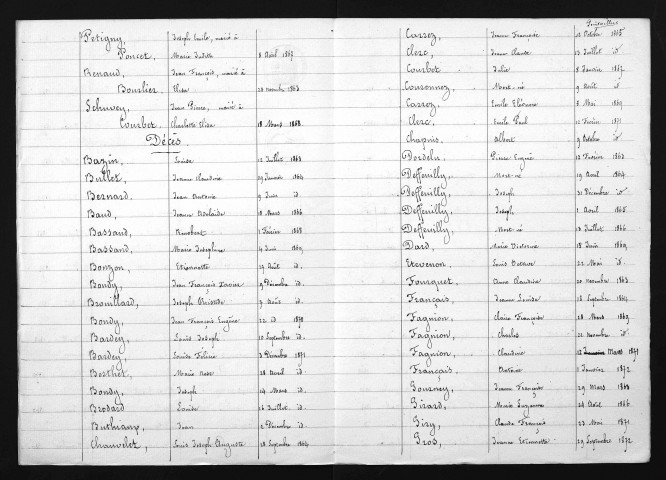 Petigny, Joseph Emile, marié à
Poncet, Marie Judith 8 Avril 1867
Renaud, Jean François, marié à
Bourlier, Elisa 20 novembre 1863
Schwey, Jean Pierre, marié à
Courbet, Charlotte Elisa 18 Mars 1868
Décès
Bazin, Louise 12 Juillet 1863
Bullet, Jeanne Claudine 29 Janvier 1864
Bernard, Jean Antoine 9 Juin id
Baud, Jeanne Adelaïde 18 Mars 1866
Bassand, 1 Février 1868
Bassand, Marie Josephine 4 Juin 1869
Bonzon, Etiennette 27 Août id
Bondy, Jean François Xavier 9 Décembre id
Brouillard, Joseph 9 Août id
Bondy, Jean François Eugène 22 id 1870
Bardey, Louis Joseph 10 Septembre id
Bardey, Louise Felicie 3 Décembre 1871
Berthet, Marie Rose 28 Avril id
Bondy, Joseph 14 Mars id
Brodard, Louise 16 Juillet id
Buthiaux, Jean 2 Décembre id
Chauvelot, Louis Joseph Auguste 28 Septembre 1864
Juivailles
Carrez, Jeanne Françoise 12 Octobre 1865
Clerc, Jean Claude 13 Juillet id
Courbet Julie 8 Janvier 1867
Couronnez, Mort-né 9 Août id
Carrez, Emile Eléonore 8 Mai 1869
Clerc, Emile Paul 12 Février 1871
Chapuis, Albert 9 Octobre id
Dordelu, Pierre Eugène 13 Février 1863
Deffeuilly, Mort-né 19 Avril 1864
Deffeuilly, Joseph 31 Décembre id
Deffeuilly, Joseph 1 Avril 1865
Deffeuilly, Mort né 18 Juillet 1866
Dard, Marie Victorine 18 Juin 1869
Etevenon, Louis Octave 22 Mai id
Fourquet, Anne Claudine 20 novembre 1863
Français, Jeanne Louise 18 Septembre 1864
Fagnion, Claire Françoise 28 Mars 1869
Fagnion, Charles 21 Novembre id
Fagnion, Claudine 12 Mars 1871
Français, Antoine 1 Janvier 1872
Gourney, Jeanne Françoise 29 Mars 1863
Girard, Marie Suzanne 24 Août 1866
Giry, Claude François 23 Mai 1871
Gros, Jeanne Etiennette 29 Septembre 1872